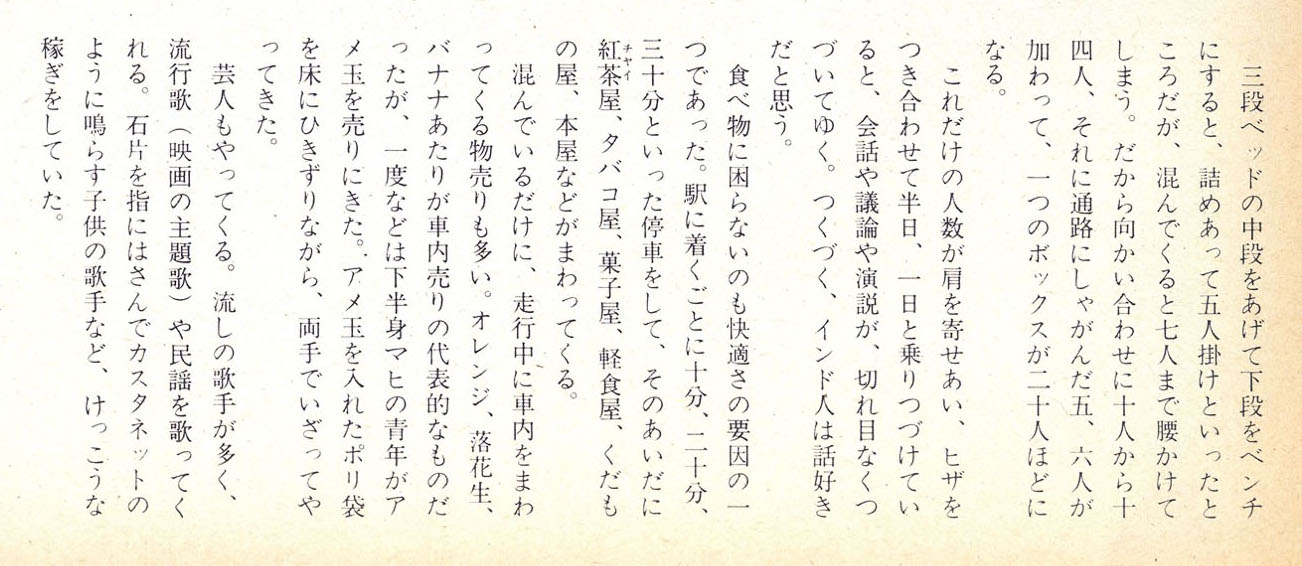 三段ベッドの中段をあげて下段をベンチ
にすると、詰めあって五人掛けといったと
ころだが、混んでくると七人まで腰かけて
しまう。だから向かい合わせに十人から十
四人、それに通路にしゃがんだ五、六人が
加わって、一つのボックスが二十人ほどに
なる。
これだけの人数が肩を寄せあい、ヒザを
つき合わせて半日、一日と乗りつづけてい
ると、会話や議論や演説が、切れ目なくつ
づいてゆく。つくづく、インド人は話好き
だと思う。
食べ物に困らないのも快適さの要因の一
つであった。駅に着くごとに十分、二十分、
三十分といった停車をして、そのあいだに
紅茶屋、タバコ屋、菓子屋、軽食屋、くだも
チャイ
の屋、本屋などがまわってくる。
混んでいるだけに、走行中に車内をまわ
ってくる物売りも多い。オレンジ、落花生、
バナナあたりが車内売りの代表的なものだ
ったが、一度などは下半身マヒの青年がア
メ玉を売りにきた。アメ玉を入れたポリ袋
を床にひきずりながら、両手でいざってや
ってきた。
芸人もやってくる。流しの歌手が多く、
流行歌（映画の主題歌）や民謡を歌ってく
れる。石片を指にはさんでカスタネットの
ように鳴らす子供の歌手など、けっこうな
稼ぎをしていた。